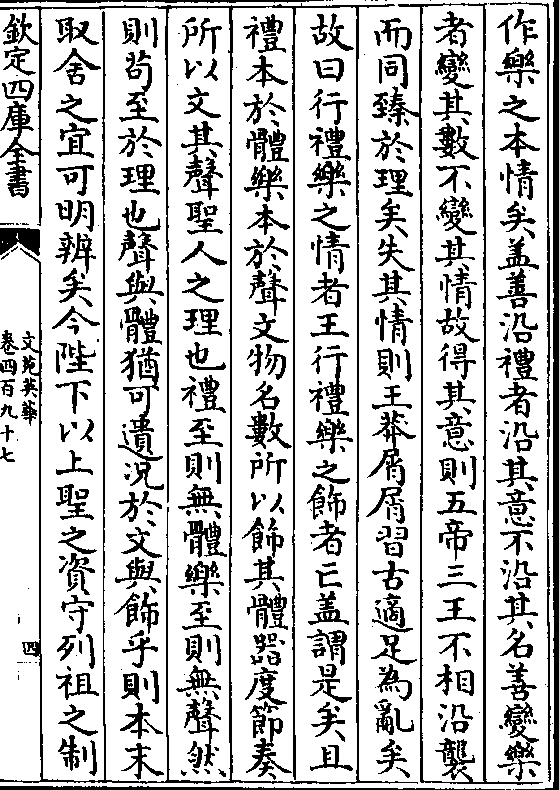 作樂之本情矣盖善沿禮者沿其意不沿其名善變樂
者變其數不變其情故得其意則五帝三王不相沿襲
而同臻於理矣失其情則王莽屑屑習古適足為亂矣
故曰行禮樂之情者王行禮樂之飾者亡盖謂是矣且
禮本於體樂本於聲文物名數所以飾其體器度節奏
所以文其聲聖人之理也禮至則無體樂至則無聲然
則茍至於理也聲與體猶可遺况於文與飾乎則本末
取舍之宜可明辨矣今陛下以上聖之資守列祖之制
欽定四庫全書
文苑英華
卷四百九十七
四